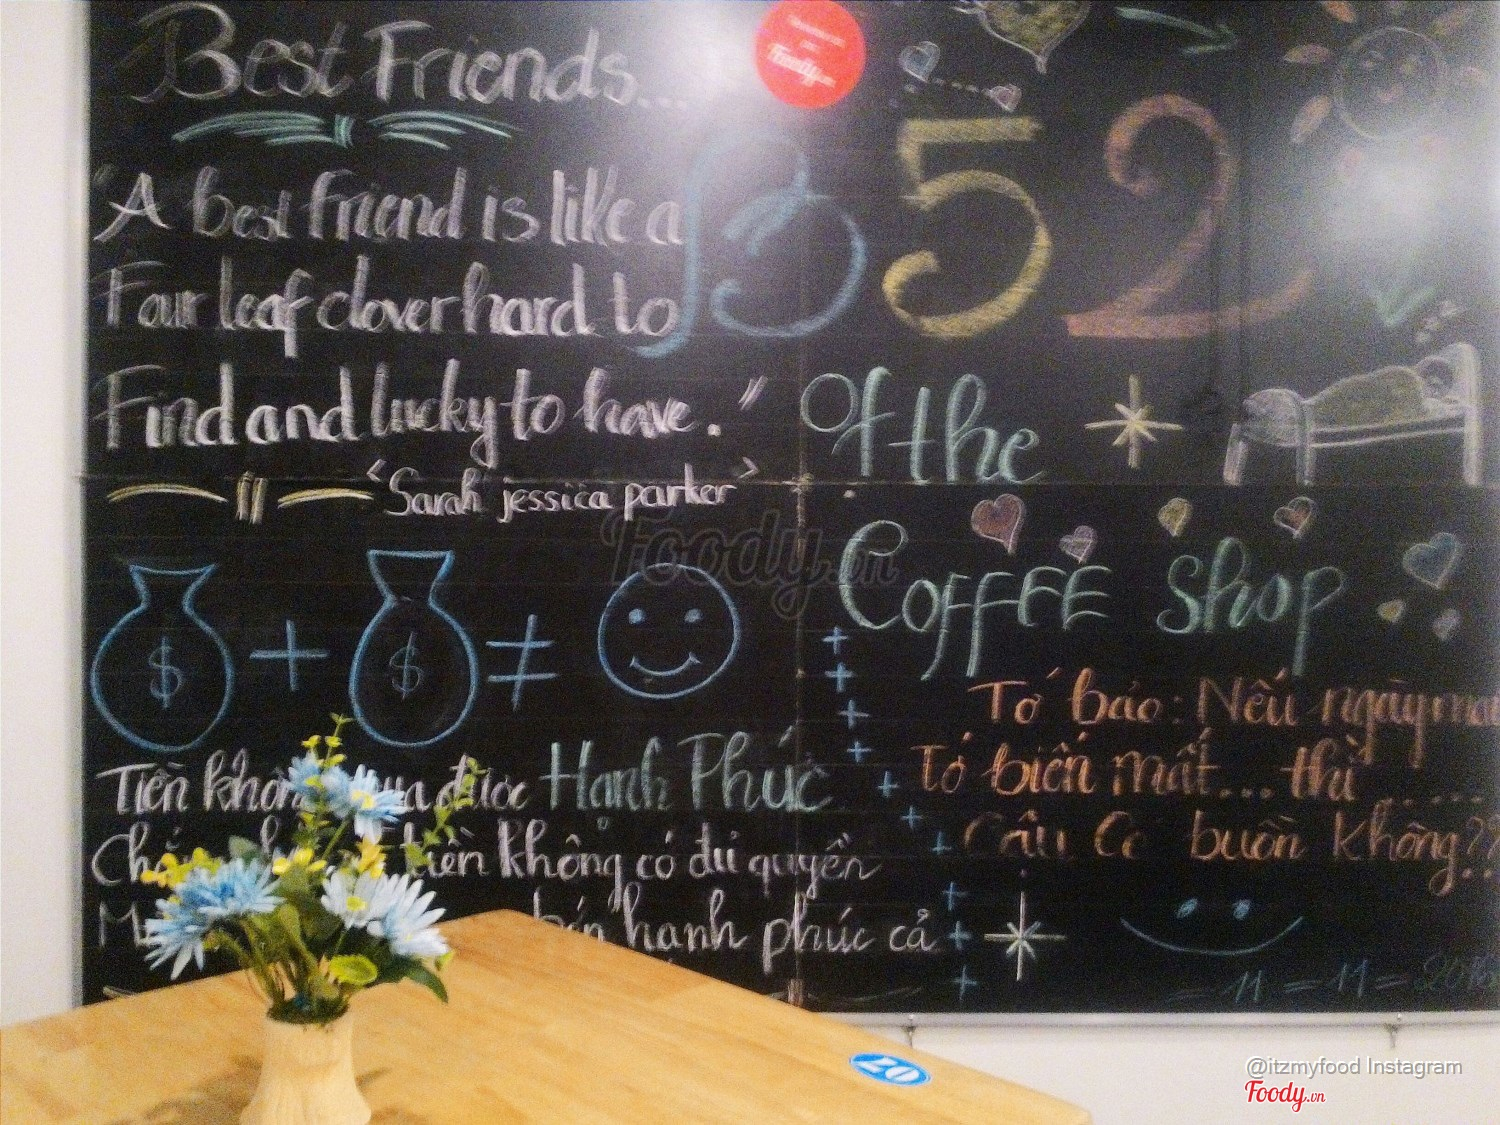 Best Friends...
"A best friend is like a
Four leaf clover hard to
Find and lucky to have."
"Sarah jessica parker"
$ + $ ≠
Tiền không mua được Hạnh Phúc
tiền không có đủ quyền
hạnh phúc cả
Foody.vn
B52
Of the
COFFEE Shop
Tớ bảo: Nếu ngày mai
Tớ biến mất... thì .....
Cậu Có buồn không??
= 11 = 11 = 2016
07
@itzmyfood Instagram
Foody.vn